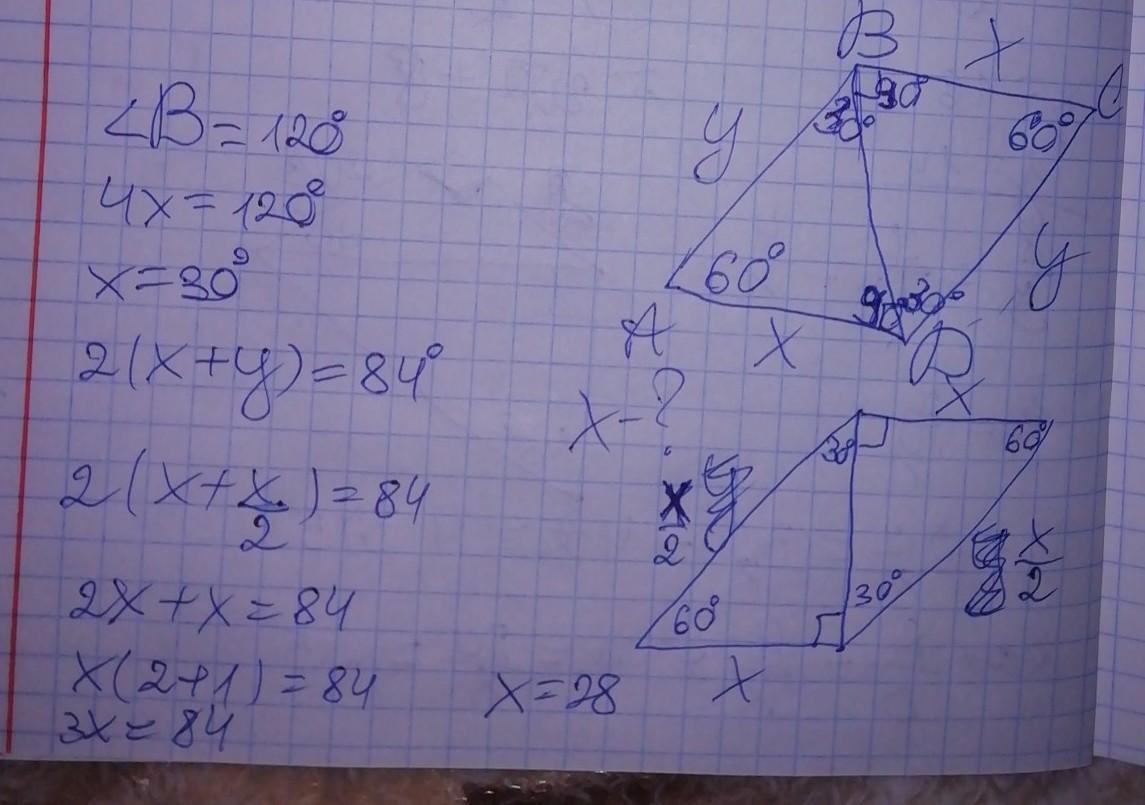 ∠B = 120°
4x = 120°
x = 30°
2(x + y) = 84°
2(x + x/2) = 84
2x + x = 84
x(2+1) = 84
3x = 84
x = 28
B
x
C
y
30°
90°
60°
60°
y
90
30°
A
x
D
x - ?
x
30
60°
x/2
x/2
60°
30°
x